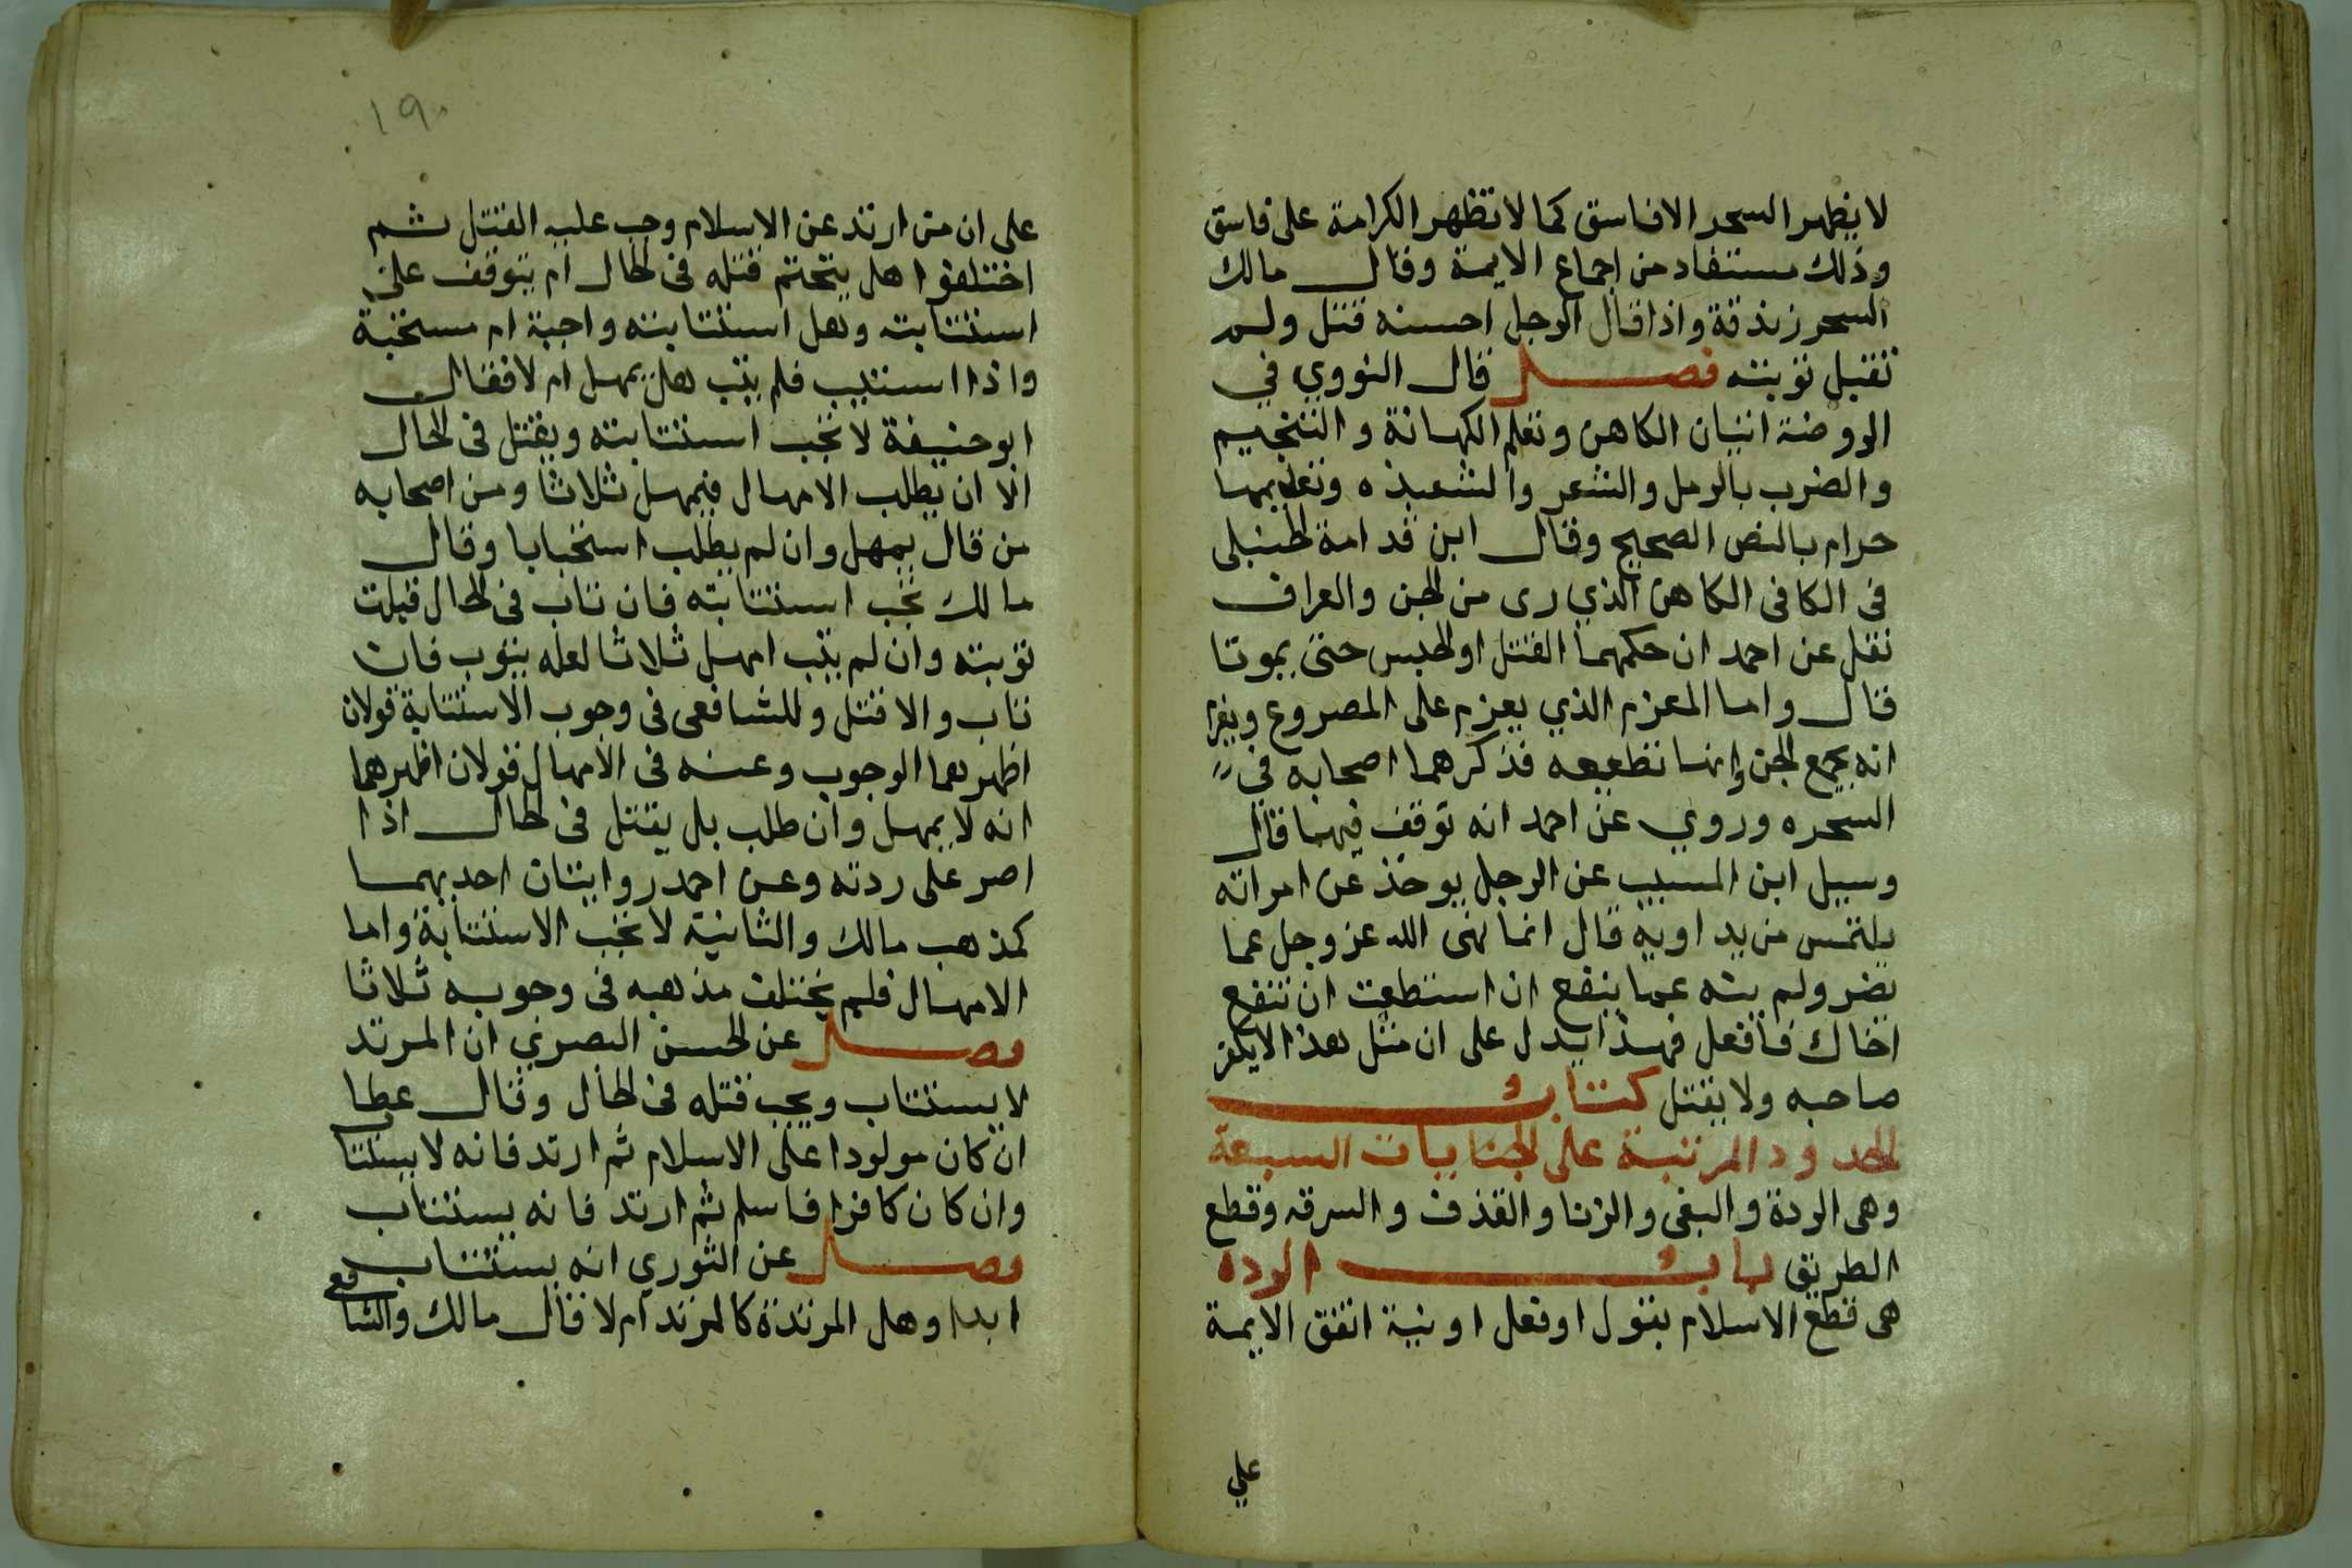 لا يظهر السحر الا فاسق كما لا تظهر الكرامة على فاسق
وذلك مستفاد من اجماع الايمة وقال مالك
السحر زندقة واذا قال الرجل احسنه قتل ولم
تقبل توبته فصل قال النووي في
الروضة اتيان الكاهن وتعلم الكهانة والتنجيم
والضرب بالرمل والشعر والشعبذه وتعليمها
حرام بالنص الصحيح وقال ابن قدامة الحنبلى
فى الكافى الكاهن الذي رى من الجن والعراف
نقل عن احمد ان حكمهما القتل او الحبس حتى يموتا
قال واما المعزم الذي يعزم على المصروع ويزعم
انه يجمع الجن وانها تطعيعه فذكرهما اصحابه في
السحره وروي عن احمد انه توقف فيهما قال
وسيل ابن المسيب عن الرجل يوخذ عن امراته
يلتمس من يداويه قال انما نهى الله عز وجل عما
يضر ولم ينه عما ينفع ان استطعت ان تنفع
اخاك فافعل فهذا يدل على ان مثل هذا لا يكفر
صاحبه ولا يقتل كتاب
الحدود المرتبة على الجنايات السبعة
وهى الردة والبغى والزنا والقذف والسرقه وقطع
الطريق باب الرده
هى قطع الاسلام بقول او فعل او نية اتفق الايمة
على
١٩٠
على ان من ارتد عن الاسلام وجب عليه القتل ثم
اختلفوا هل يتحتم قتله فى الحال ام يتوقف على
استتابته وهل استتابته واجبة ام مستحبة
واذا استتيب فلم يتب هل يمهل ام لا فقال
ابو حنيفة لا تجب استتابته ويقتل فى الحال
الا ان يطلب الامهال فيمهل ثلاثا ومن اصحابه
من قال يمهل وان لم يطلب استحبابا وقال
مالك تجب استتابته فان تاب فى الحال قبلت
توبته وان لم يتب امهل ثلاثا لعله يتوب فان
تاب والا قتل وللشافعى فى وجوب الاستتابة قولان
اظهرهما الوجوب وعنه فى الامهال قولان اظهرهما
انه لا يمهل وان طلب بل يقتل فى الحال اذا
اصر على ردته وعن احمد روايتان احديهما
كمذهب مالك والثانية لا تجب الاستتابة واما
الامهال فلم يختلف مذهبه فى وجوبه ثلاثا
فصل عن الحسن البصري ان المرتد
لا يستتاب ويجب قتله فى الحال وقال عطا
ان كان مولودا على الاسلام ثم ارتد فانه لا يستتاب
وان كان كافرا فاسلم ثم ارتد فانه يستتاب
فصل عن الثوري انه يستتاب
ابدا وهل المرتدة كالمرتد ام لا فقال مالك والشافعي